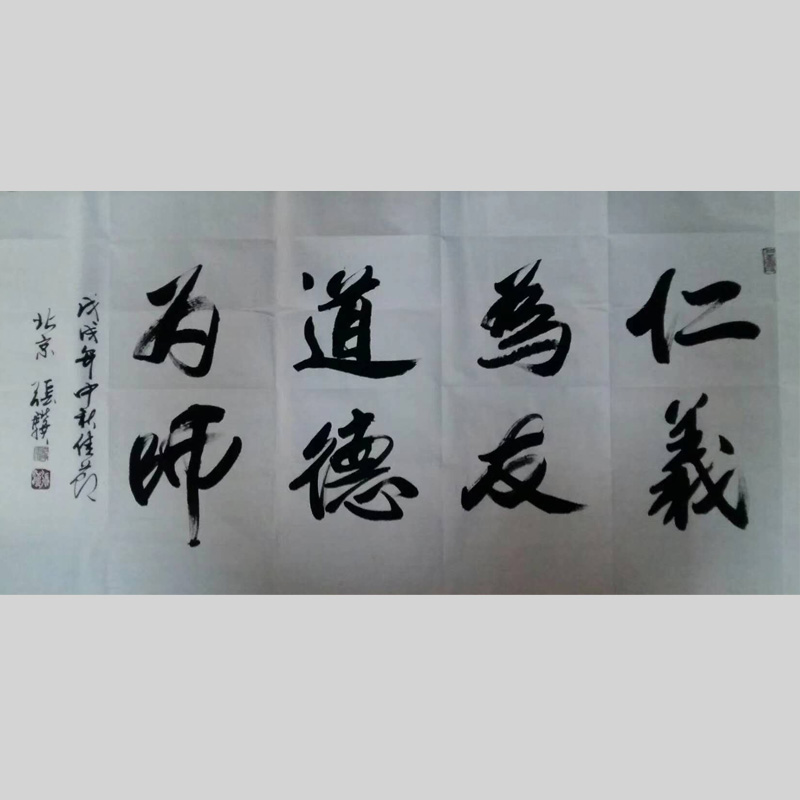 仁義
為友
道德
为师
戊戌年中秋佳节
北京 張